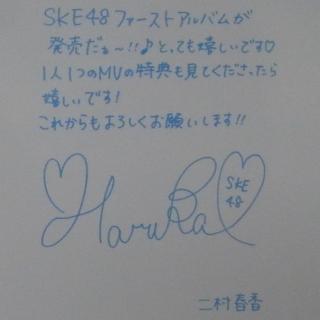 SKE48 ファーストアルバムが
発売だぁ〜!!♪とっても嬉しいです♡
1人1つのMVの特典も見てくださったら
嬉しいです!
これからもよろしくお願いします!!
Haruka
SKE
48
二村春香